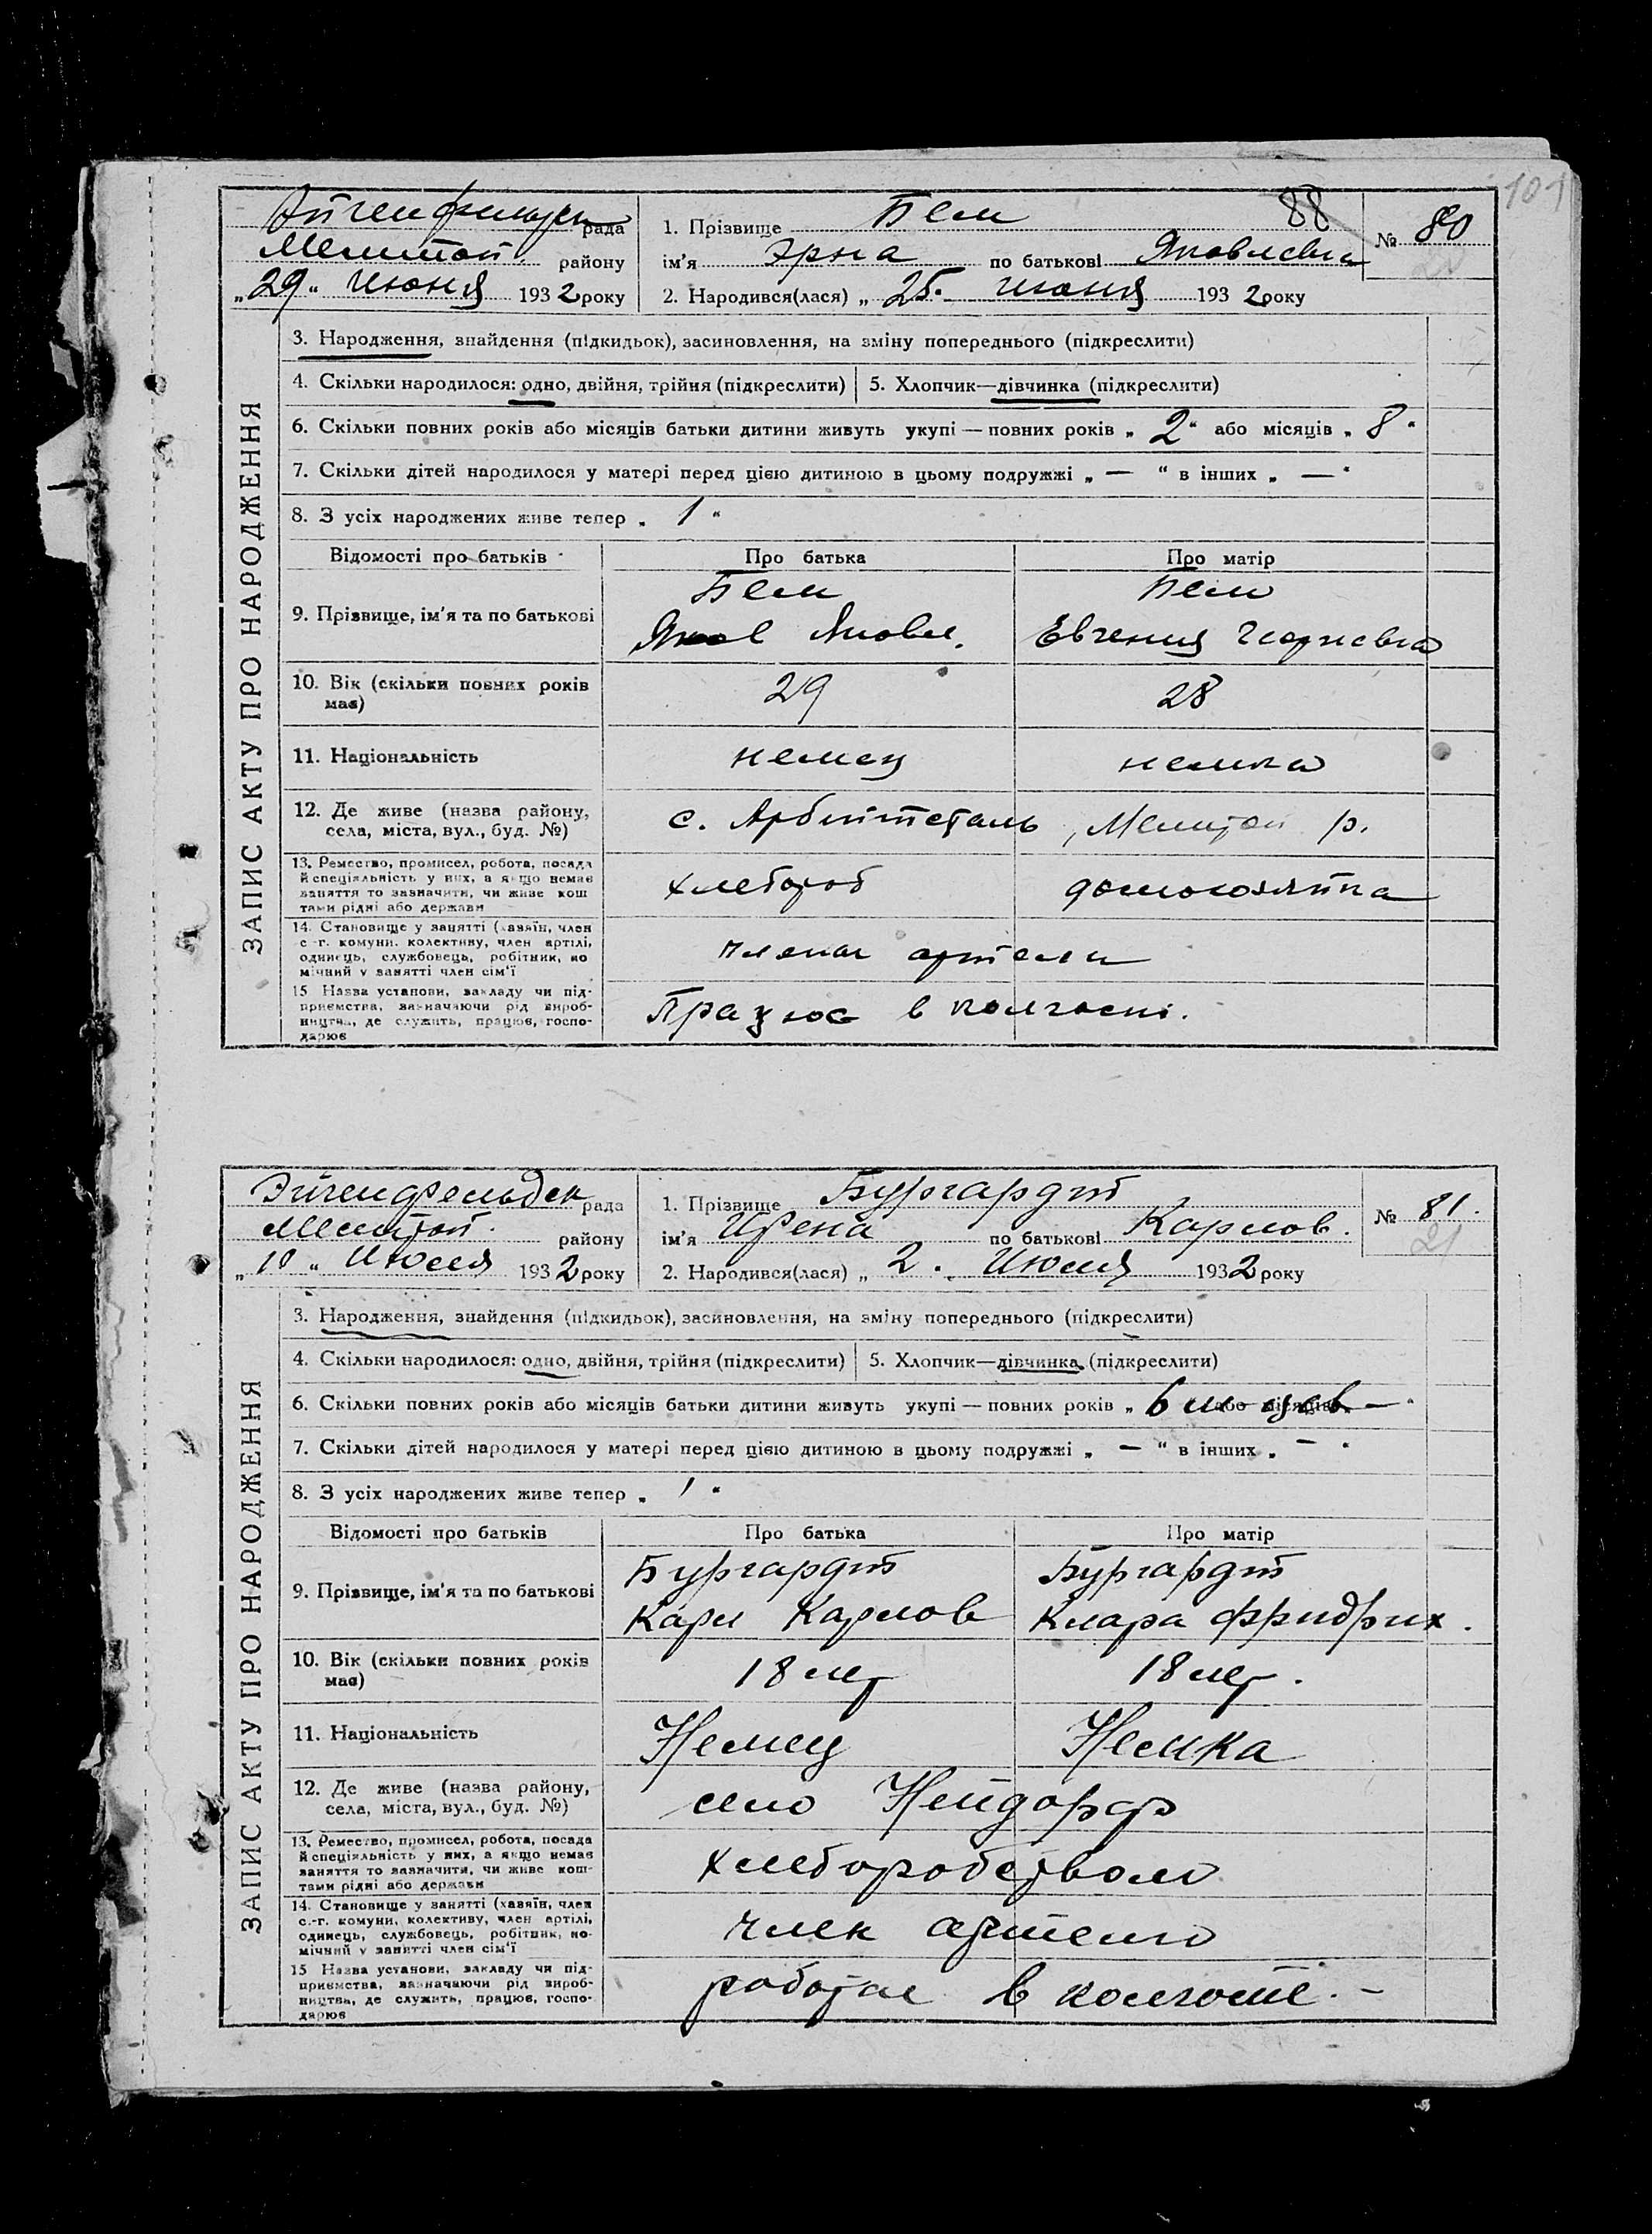 101
рада
Мелитоп. району
„29“ Июня 1932 року
1. Прізвище Бем 88
ім'я Эрна по батькові Яковлевна
2. Народився(лася) „25. Июня 1932 року
№ 80
20
ЗАПИС АКТУ ПРО НАРОДЖЕННЯ
3. Народження, знайдення (підкидьок), засиновлення, на зміну попереднього (підкреслити)
4. Скільки народилося: одно, двійня, трійня (підкреслити) 5. Хлопчик—дівчинка (підкреслити)
6. Скільки повних років або місяців батьки дитини живуть укупі — повних років „ 2 “ або місяців „ 8 “
7. Скільки дітей народилося у матері перед цією дитиною в цьому подружжі „ — “ в інших „ — “
8. З усіх народжених живе тепер „ 1 “
Відомості про батьків Про батька Про матір
9. Прізвище, ім'я та по батькові
Бем Бем
Яков Яковл. Евгения Георгиевна
10. Вік (скільки повних років має) 29 28
11. Національність немец немка
12. Де живе (назва району, села, міста, вул., буд. №) с. Арбейтсталь, Мелитоп р.
13. Ремество, промисел, робота, посада й спеціяльність у них, а якщо немає заняття то зазначити, чи живе коштами рідні або держави хлебороб домохозяйка
14. Становище у занятті (хазяїн, член с.-г. комуни, колективу, член артілі, одинець, службовець, робітник, помічний у занятті член сім'ї члены артели
15 Назва установи, закладу чи підприємства, зазначаючи рід виробництва, де служить, працює, господарює Працює в колгоспі.
Эйгенфельдск рада
Мелитоп. району
„10“ Июля 1932 року
1. Прізвище Бургардт
ім'я Ирена по батькові Карлов.
2. Народився(лася) „2. Июля 1932 року
№ 81.
21
ЗАПИС АКТУ ПРО НАРОДЖЕННЯ
3. Народження, знайдення (підкидьок), засиновлення, на зміну попереднього (підкреслити)
4. Скільки народилося: одно, двійня, трійня (підкреслити) 5. Хлопчик—дівчинка (підкреслити)
6. Скільки повних років або місяців батьки дитини живуть укупі — повних років „ 6 або місяців —“
7. Скільки дітей народилося у матері перед цією дитиною в цьому подружжі „ — “ в інших „ — “
8. З усіх народжених живе тепер „ 1 “
Відомості про батьків Про батька Про матір
9. Прізвище, ім'я та по батькові
Бургардт Бургардт
Карл Карлов Клара Фридрих.
10. Вік (скільки повних років має) 18 лет 18 лет.
11. Національність Немец Немка
12. Де живе (назва району, села, міста, вул., буд. №) село Нейдорф
13. Ремество, промисел, робота, посада й спеціяльність у них, а якщо немає заняття то зазначити, чи живе коштами рідні або держави хлеборобством
14. Становище у занятті (хазяїн, член с.-г. комуни, колективу, член артілі, одинець, службовець, робітник, помічний у занятті член сім'ї член
15 Назва установи, закладу чи підприємства, зазначаючи рід виробництва, де служить, працює, господарює в